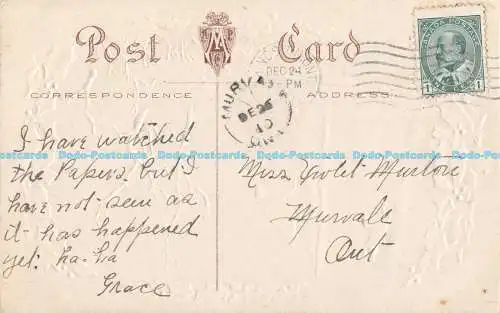 Post Card
CORRESPONDENCE
ADDRESS
DEC 24
3 - PM
CANADA POSTAGE
1 1
MURVALE
DE 26
10
ONT
I have watched
the Papers but I
have not seen as
it has happened
yet. ha-ha
Grace
Miss Violet
Murvale
Ont
Dodo-Postcards Dodo-Postcards Dodo-Postcards Dodo-Postcards Dodo-Postcards Dodo-Postcards